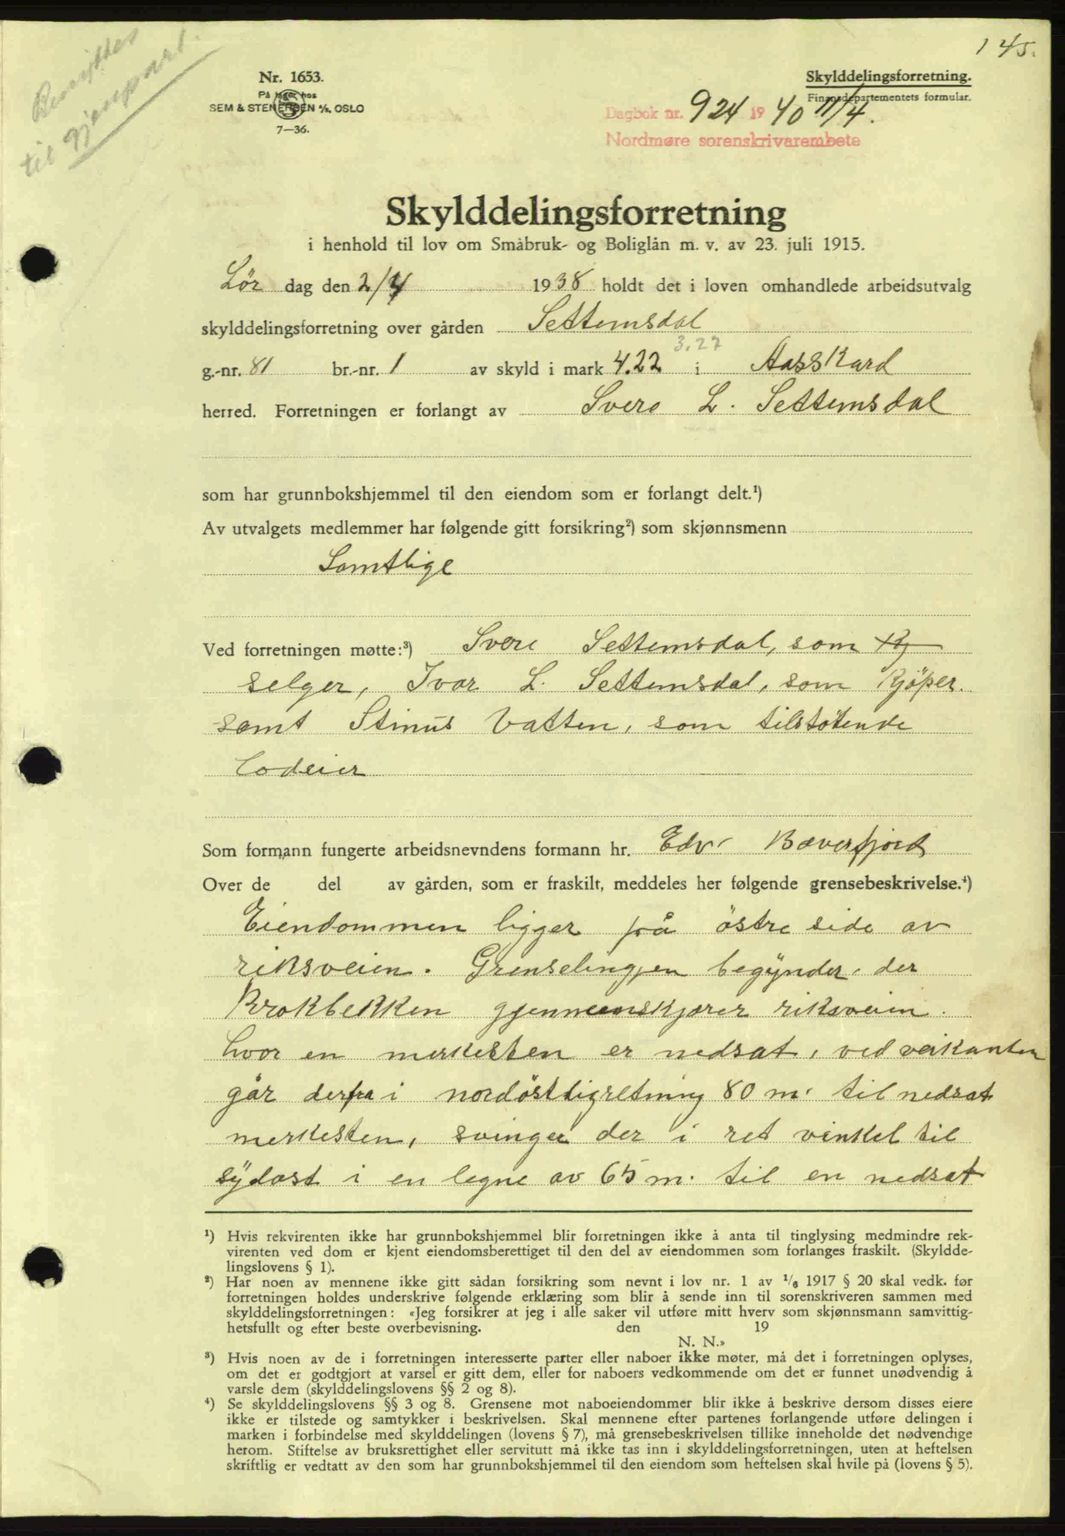 145.
Benyttes
til gjenpart.
Nr. 1653.
På lager hos
SEM & STENERSEN A/S. OSLO
7—36.
Skylddelingsforretning.
Finansdepartementets formular.
Dagbok nr. 924 1940 11/4.
Nordmøre sorenskrivarembete
Skylddelingsforretning
i henhold til lov om Småbruk- og Boliglån m. v. av 23. juli 1915.
Lör dag den 2/4 1938 holdt det i loven omhandlede arbeidsutvalg
skylddelingsforretning over gården Settemsdal
3,27
g.-nr. 81 br.-nr. 1 av skyld i mark 4.22 i Aasskard
herred. Forretningen er forlangt av Svere L. Settemsdal
som har grunnbokshjemmel til den eiendom som er forlangt delt.¹)
Av utvalgets medlemmer har følgende gitt forsikring²) som skjønnsmenn
Samtlige
Ved forretningen møtte:³) Svere Settemsdal, som
selger, Ivar L. Settemsdal, som kjöper.
samt Stinus Vatten, som tilstötende
lodeier
Som formann fungerte arbeidsnevndens formann hr. Edv. Bæverfjord
Over de del av gården, som er fraskilt, meddeles her følgende grensebeskrivelse.⁴)
Eiendommen ligger på östre side av
riksveien. Grenselingjen begynder, der
Brokbekken gjennemskjærer riksveien.
hvor en merkesten er nedsat, ved veikanten
går derfra i nordöstligretning 80 m. til nedsat
merkesten, svinger der i ret vinkel til
sydøst i en legne av 65 m. til en nedsat
¹) Hvis rekvirenten ikke har grunnbokshjemmel blir forretningen ikke å anta til tinglysing medmindre rek-
virenten ved dom er kjent eiendomsberettiget til den del av eiendommen som forlanges fraskilt. (Skyldde-
lingslovens § 1).
²) Har noen av mennene ikke gitt sådan forsikring som nevnt i lov nr. 1 av 1/6 1917 § 20 skal vedk. før
forretningen holdes underskrive følgende erklæring som blir å sende inn til sorenskriveren sammen med
skylddelingsforretningen: «Jeg forsikrer at jeg i alle saker vil utføre mitt hverv som skjønnsmann samvittig-
hetsfullt og efter beste overbevisning. den 19
N. N.»
³) Hvis noen av de i forretningen interesserte parter eller naboer ikke møter, må det i forretningen oplyses,
om det er godtgjort at varsel er gitt dem, eller for naboers vedkommende om det er funnet unødvendig å
varsle dem (skylddelingslovens §§ 2 og 8).
⁴) Se skylddelingslovens §§ 3 og 8. Grensene mot naboeiendommer blir ikke å beskrive dersom disses eiere
ikke er tilstede og samtykker i beskrivelsen. Skal mennene efter partenes forlangende utføre delingen i
marken i forbindelse med skylddelingen (lovens § 7), må grensebeskrivelsen tillike inneholde det nødvendige
herom. Stiftelse av bruksrettighet eller servitutt må ikke tas inn i skylddelingsforretningen, uten at heftelsen
skriftlig er vedtatt av den som har grunnbokshjemmel til den eiendom som heftelsen skal hvile på (lovens § 5).